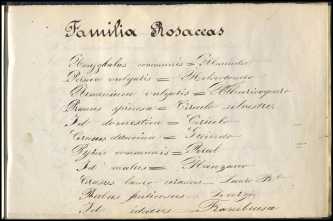 Familia Rosaceas
Amygdalus communis = Almendro
Persica vulgaris = Melocotonero
Armeniaca vulgaris = Albaricoquero
Prunus spinosa = Ciruelo silvestre
Id domestica = Ciruelo
Cerasus = Guindo
Pyrus communis = Peral
Id malus = Manzano
Cerasus lauro cerasus = Lauro
Rubus fruticosus = Zarza
Id idaeus = Frambuesa